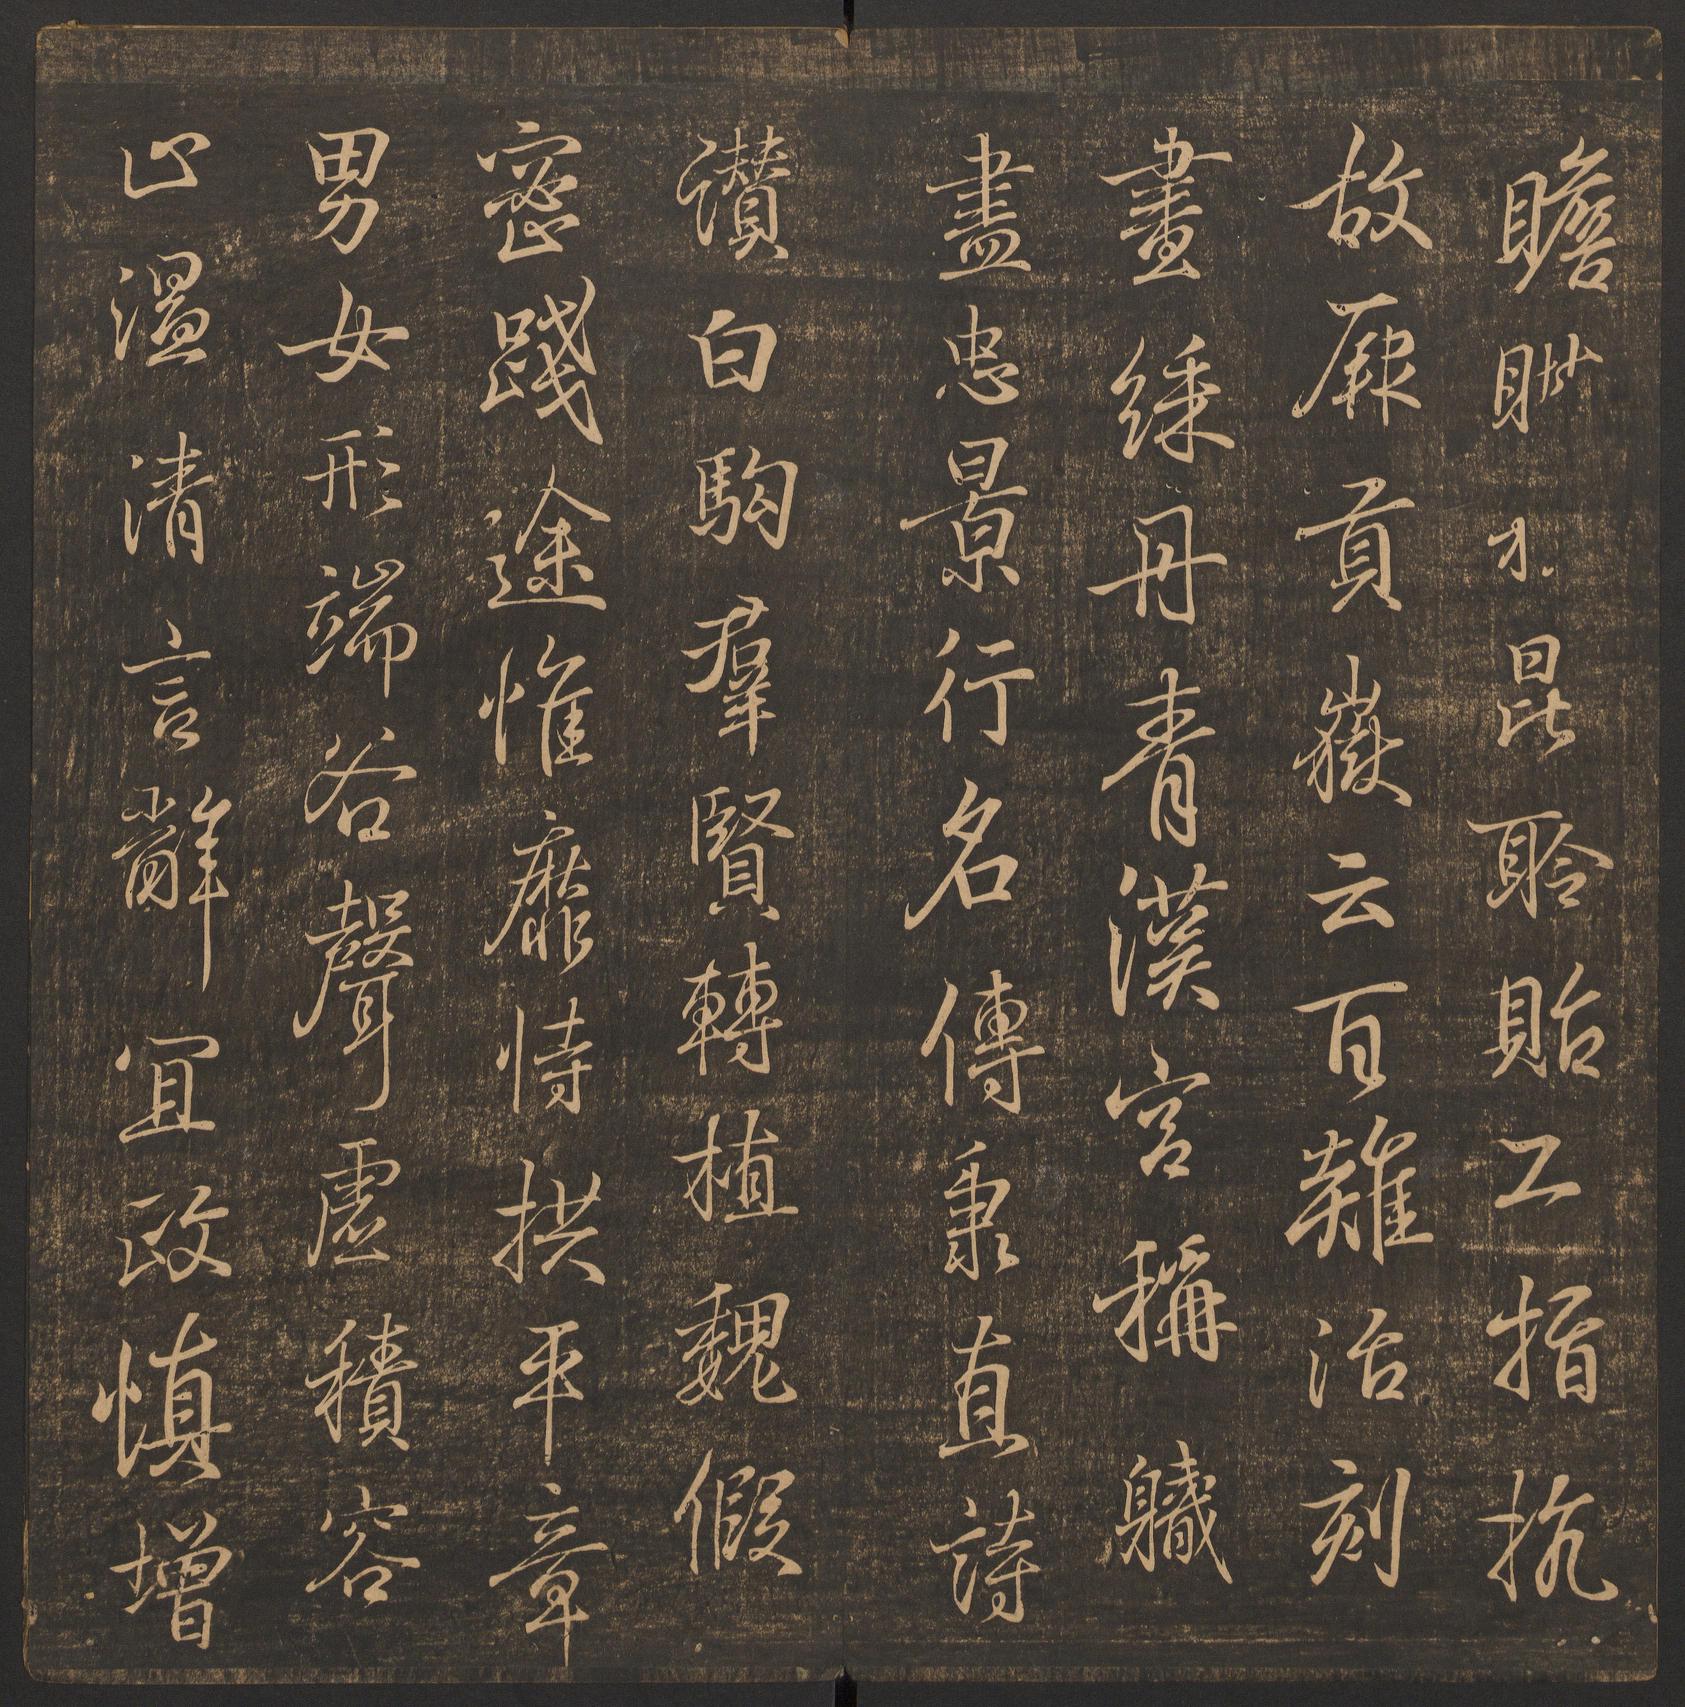 瞻眺才昆聆貽工指抗
故厥貢嶽云百難治刻
畫綵丹青漢宮稱職
盡忠景行名傳秉直詩
讚白駒羣賢轉植魏假
密踐途惟靡恃拱平章
男女形端谷聲虛積容
止溫清言辭宜政慎增